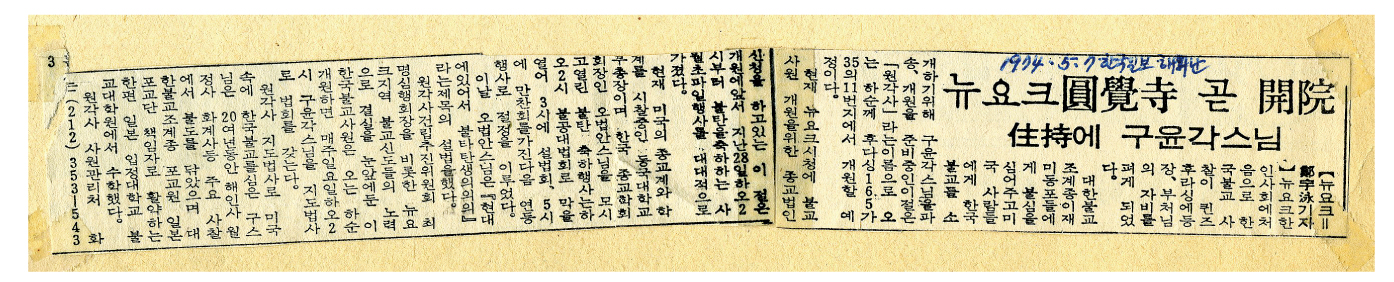 1974.5.7 한국일보 해외판
뉴요크圓覺寺 곧 開院
住持에 구윤각스님
【뉴요크＝
鄭宇泳기자
】뉴요크한
인사회에처
음으로 한
국불교 사
찰이 퀸즈
후라싱에등
장、부처님
의 자비를
펴게 되었
다。
대한불교
조계종이재
미동포들에
게 불심을
심어주고미
국 사람들
에게 한국
불교를 소
개하기위해 구윤각스님을파
송、개원을 준비중인이절은
「원각사」라는이름으로 오
는 하순께 후다싱 16 5가
35의11번지에서 개원할 예
정이다。
현재 뉴요크시청에 불교
사원 개원을위한 종교법인
신청을 하고있는 이 절은
개원에앞서 지난28일하오2
시부터 불탄을축하하는 사
월초파일행사를 대대적으로
가졌다。
현재 미국의 종교계와 학
계를 시찰중인 동국대학교
부총장이며 한국 종교학회
회장인 오법안스님을 모시
고열린 불탄 축하행사는하
오2시 불공대법회로 막을
열어 3시에 설법회、5시
에 만찬회를가진다음 연등
행사로 절정을 이루었다。
이날 오법안스님은『현대
에있어서 불타탄생의의의』
라는제목의 설법을했다。
원각사건립추진위원회 최
명섭회장을 비롯한 뉴요
크지역 불교신도들의 노력
으로 결실을 눈앞에둔 이
한국불교사원은 오는 하순
개원하면 매주일요일하오2
시 구윤각스님을 지도법사
로 법회를 갖는다。
원각사 지도법사로 미국
속에 한국불교를심은 구스
님은 20여년동안 해인사 월
정사 화계사등 주요 사찰
에서 불도를 닦았으며 대
한불교조계종 포교원 일본
포교단 책임자로 활약하는
한편 일본 임정대학교 불
교대학원에서 수학했다。
원각사 사원관리처 화
＝(212)353ー1543
3